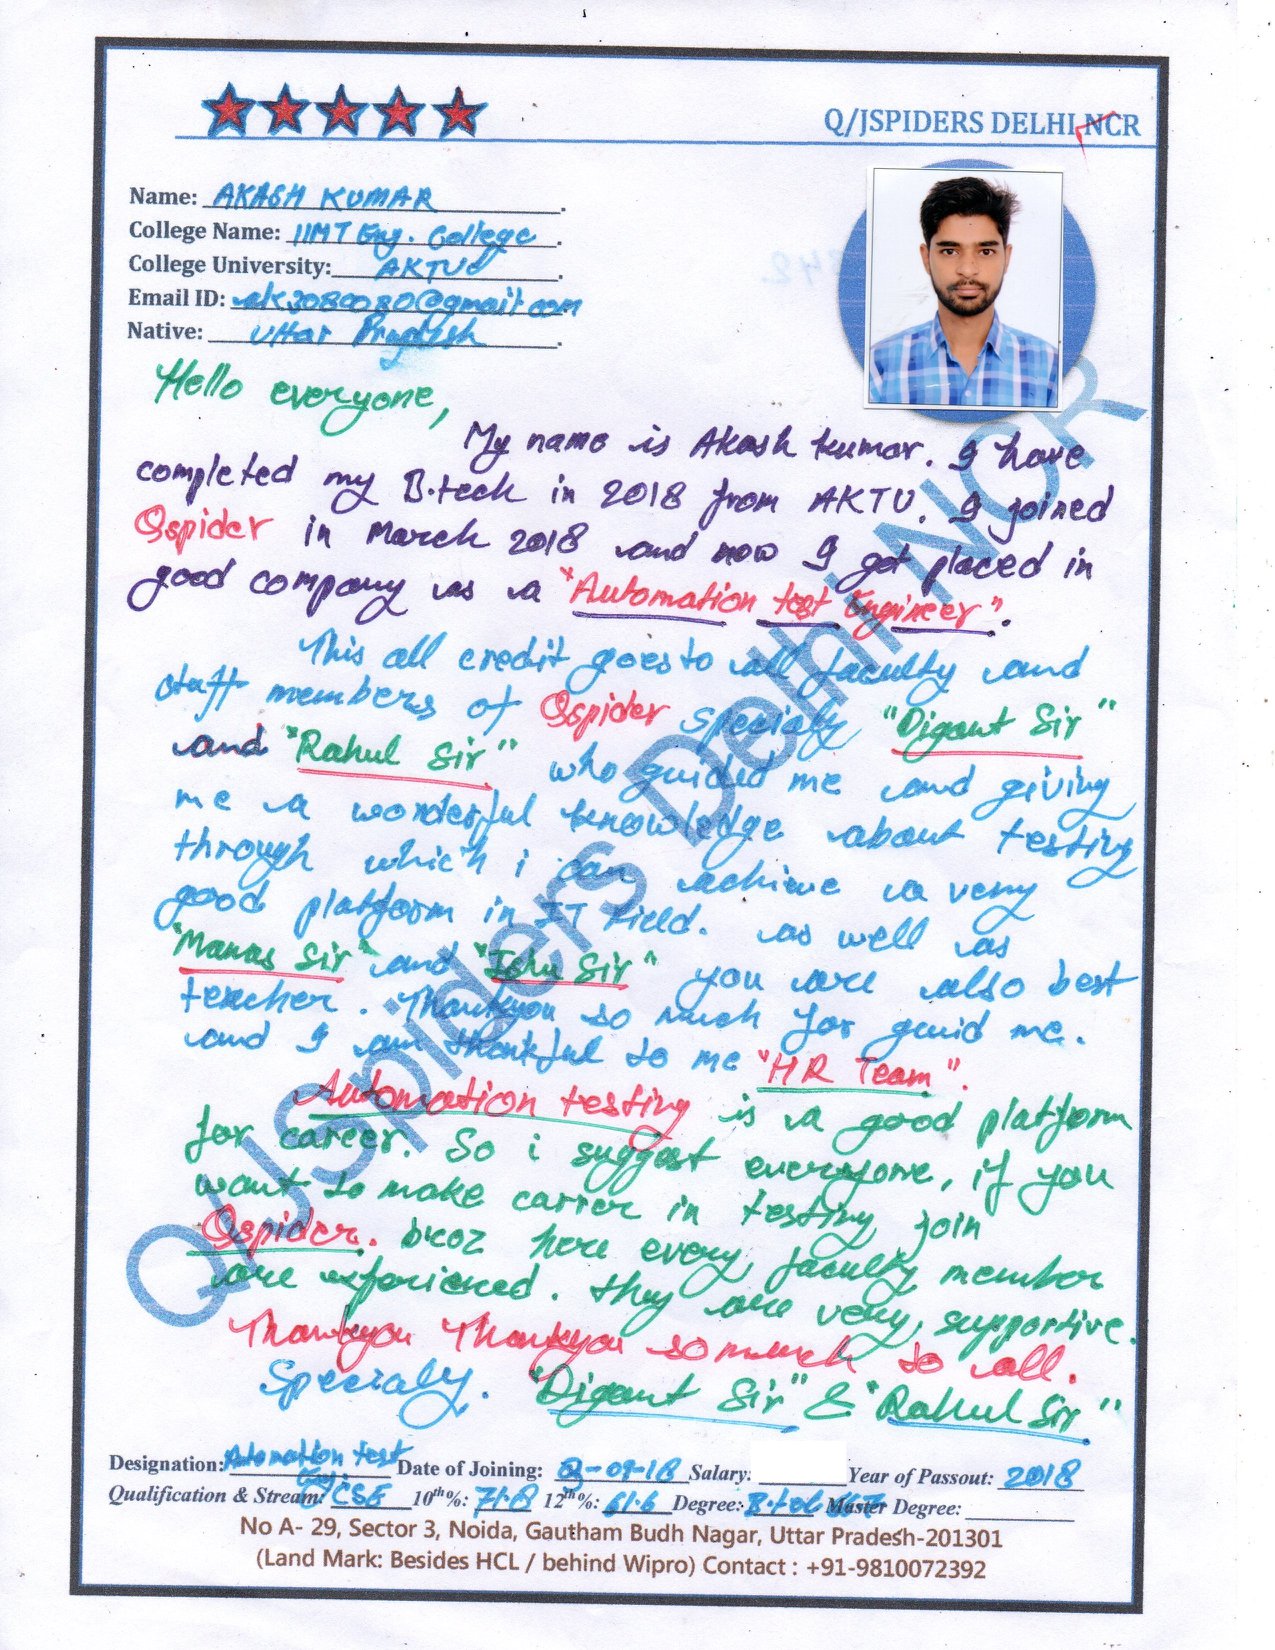 Q/JSPIDERS DELHI NCR
Name: AKASH KUMAR
College Name: IIMT Eng. College
College University: AKTU
Email ID: ak3080080@gmail.com
Native: Uttar Pradesh
Hello everyone,
My name is Akash kumar. I have
completed my B.tech in 2018 from AKTU. I joined
Qspider in March 2018 and now I got placed in
good company as a "Automation test Engineer".
This all credit goes to all faculty and
staff members of Qspider specialy "Digant Sir"
and "Rahul Sir" who guided me and giving
me a wonderful knowledge about testing
through which i can achieve a very
good platform in IT field. as well as
"Manas Sir" and "Ishu Sir" you are also best
teacher. Thankyou so much for guid me.
and I am thankful to me "HR Team".
Automation testing is a good platform
for career. So i suggest everyone, if you
want to make carrer in testing join
Qspider. bcoz here every faculty member
are experienced. they are very supportive.
Thankyou Thankyou so much to all.
Specialy. "Digant Sir" & "Rahul Sir"
Designation: Automation test Date of Joining: -09-18 Salary: Year of Passout: 2018
Qualification & Stream: CSE 10th%: 71.8 12th%: 61.6 Degree: B.tech Master Degree:
No A- 29, Sector 3, Noida, Gautham Budh Nagar, Uttar Pradesh-201301
(Land Mark: Besides HCL / behind Wipro) Contact : +91-9810072392
Q/JSpiders Delhi NCR